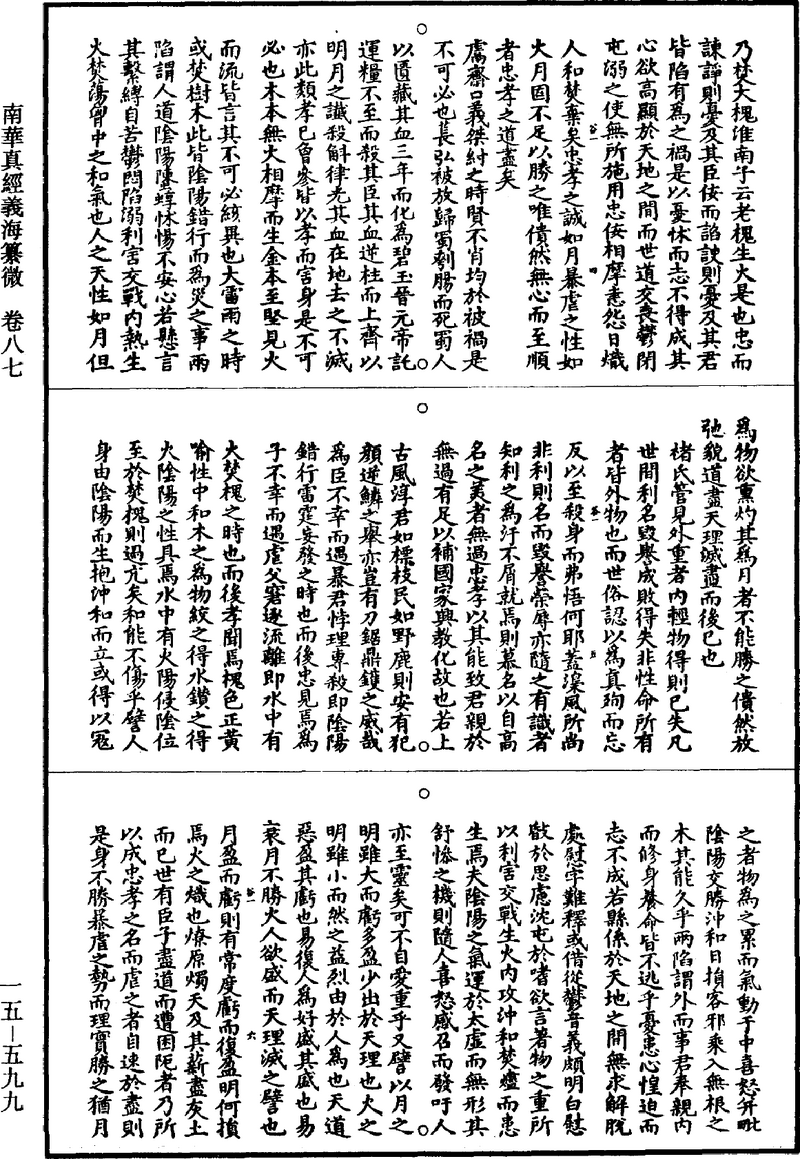 乃焚大槐淮南子云老槐生火是也忠而
諫諍則憂及其臣佞而諂諛則憂及其君
皆陷有為之禍是以憂怵而志不得成其
心欲高顯於天地之間而世道交喪鬱閉
屯溺之使無所施用忠佞相摩恚怨日熾
人和焚棄矣忠孝之誠如月暴虐之性如
火月固不足以勝之唯僓然無心而至順
者忠孝之道盡矣
鬳齋口義桀紂之時賢不肖均於被禍是
不可必也萇弘被放歸蜀刳腸而死蜀人
以匱藏其血三年而化為碧玉晉元帝託
運糧不至而殺其臣其血逆柱而上齊以
明月之讖殺斛律光其血在地去之不滅
亦此類孝已曾參皆以孝而害身是不可
必也木本無火相摩而生金本至堅見火
而流皆言其不可必絃異也大雷雨之時
或焚樹木此皆陰陽錯行而為災之事兩
陷謂人道陰陽螴蜳怵惕不安心若懸言
其繫縛自苦鬱悶陷溺利害交戰內熱生
火焚蕩胷中之和氣也人之天性如月但
為物欲熏灼其為月者不能勝之僓然放
弛貌道盡天理滅盡而後已也
褚氏管見外重者內輕物得則已失凡
世間利名毀譽成敗得失非性命所有
者皆外物也而世俗認以為真殉而忘
反以至殺身而弗悟何耶蓋澆風所尚
非利則名而毀譽榮辱亦隨之有識者
知利之為汙不屑就焉則慕名以自高
名之美者無過忠孝以其能致君親於
無過有足以補國家興教化故也若上
古風淳君如標枝民如野鹿則安有犯
顏逆鱗之舉亦豈有刀鋸鼎鑊之威哉
為臣不幸而遇暴君悖理專殺即陰陽
錯行雷霆妄發之時也而後忠見焉為
子不幸而遇虐父窘逐流離即水中有
火焚槐之時也而後孝聞焉槐色正黃
喻性中和木之為物絞之得水鑽之得
火陰陽之性具焉水中有火陽侵陰位
至於焚槐則過亢矣和能不傷乎譬人
身由陰陽而生抱沖和而立或得以冦
之者物為之累而氣動于中喜怒并毗
陰陽交勝沖和日損客邪乘入無根之
木其能久乎兩陷謂外而事君奉親內
而修身養命皆不逃乎憂患心惶迫而
志不成若縣係於天地之間無求解脫
處慰字難釋或借從鬱音義頗明白慰
啟於思慮沈屯於嗜欲言著物之重所
以利害交戰生火內攻沖和焚燼而患
生焉夫陰陽之氣運於太虛而無形其
舒慘之機則隨人喜怒感召而發吁人
亦至靈矣可不自愛重乎又譬以月之
明雖大而虧多盈少出於天理也火之
明雖小而然之益烈由於人為也天道
惡盈其虧也易復人為好盛其盛也易
衰月不勝火人欲盛而天理滅之譬也
月盈而虧則有常度虧而復盈明何損
焉火之熾也燎原燭天及其薪盡灰土
而已世有臣子盡道而遭困阨者乃所
以成忠孝之名而虐之者自速於盡則
是身不勝暴虐之勢而理實勝之猶月
南華真經義海纂微 卷八七
一五—五九九